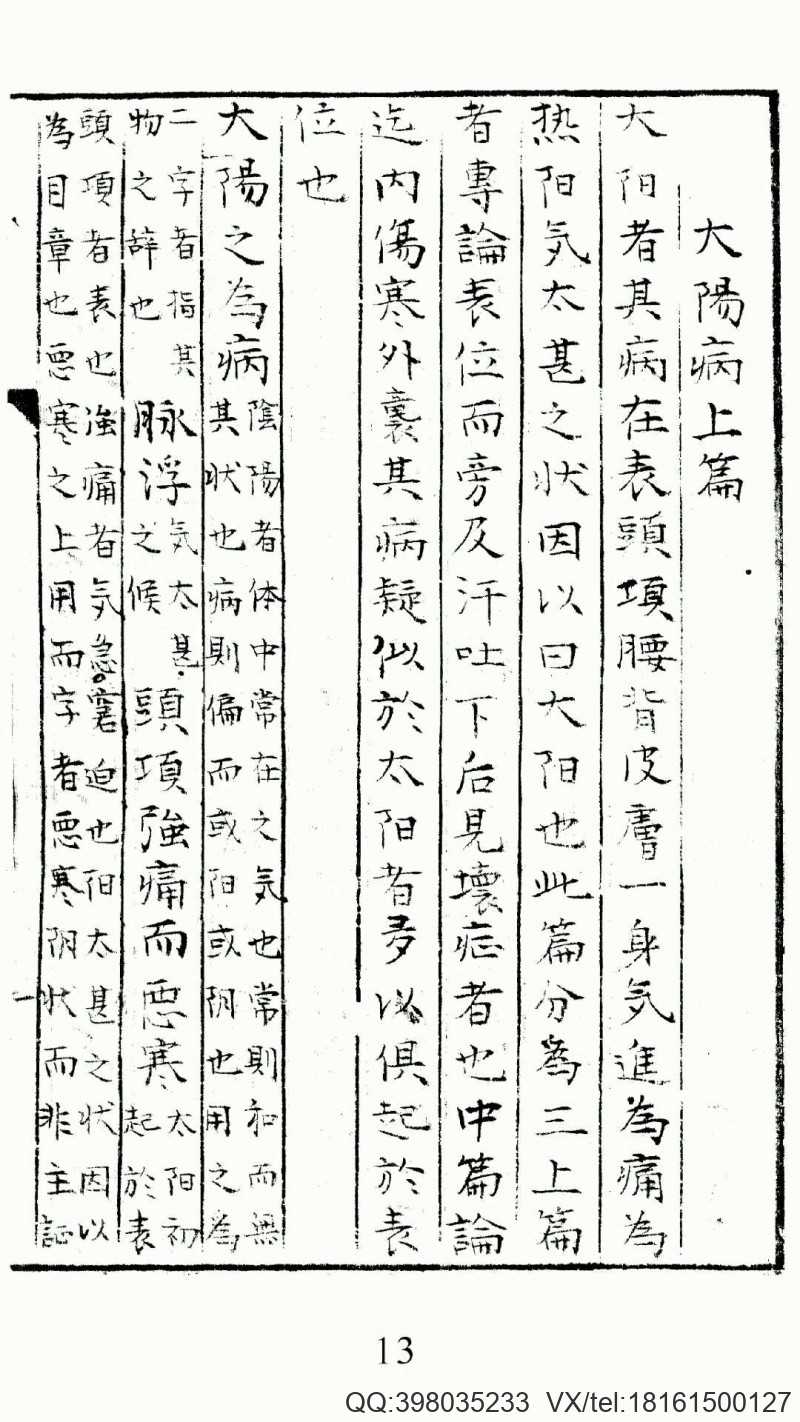 大陽病上篇
大阳者其病在表頭項腰背皮膚一身気進為痛為
热阳気太甚之状因以曰大阳也此篇分為三上篇
者專論表位而旁及汗吐下后見壞症者也中篇論
迄内傷寒外囊其病疑似於太阳者多以俱起於表
位也
大陽之為病
陰陽者体中常在之気也常則和而無
其状也病則偏而或阳或阴也用之為
二字者指其
物之辞也
脉浮
気太甚
之候
頭項強痛而悪寒
太阳初
起於表
頭項者表也強痛者気急窘迫也阳太甚之状因以
為目章也悪寒之上用而字者悪寒阴状而非主証
13
QQ:398035233 VX/tel:18161500127